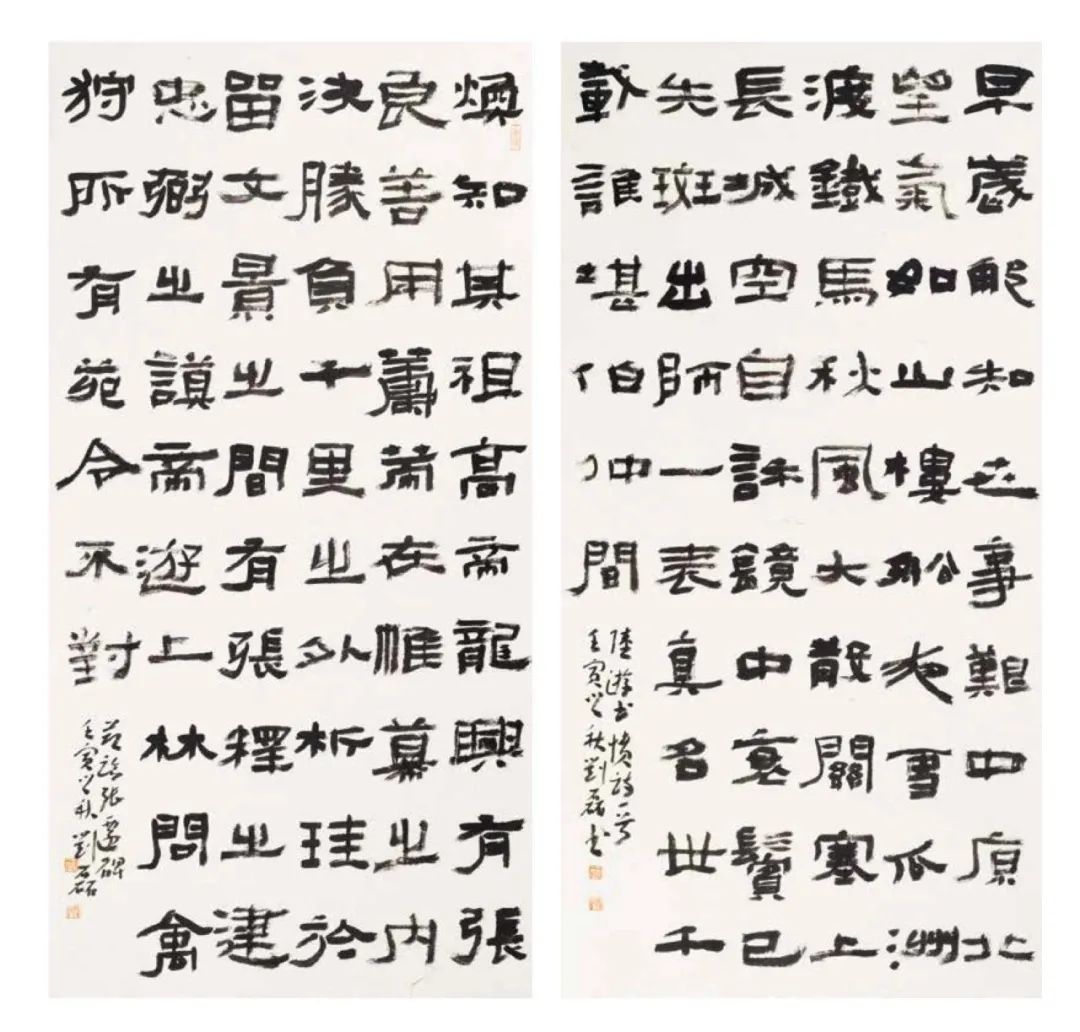 早歲那知世事難中原北
望氣如山樓船夜雪瓜洲
渡鐵馬秋風大散關塞上
長城空自許鏡中衰鬢已
先斑出師一表真名世千
載誰堪伯仲間
陸游書憤詩一首
壬寅之秋劉磊書
煥知其祖高帝龍興有張
良善用籌策在帷幕之內
決勝負千里之外析珪於
留文景之間有張釋之建
忠弼之謨帝遊上林問禽
狩所有苑令不對
節臨張遷碑
壬寅之秋劉磊